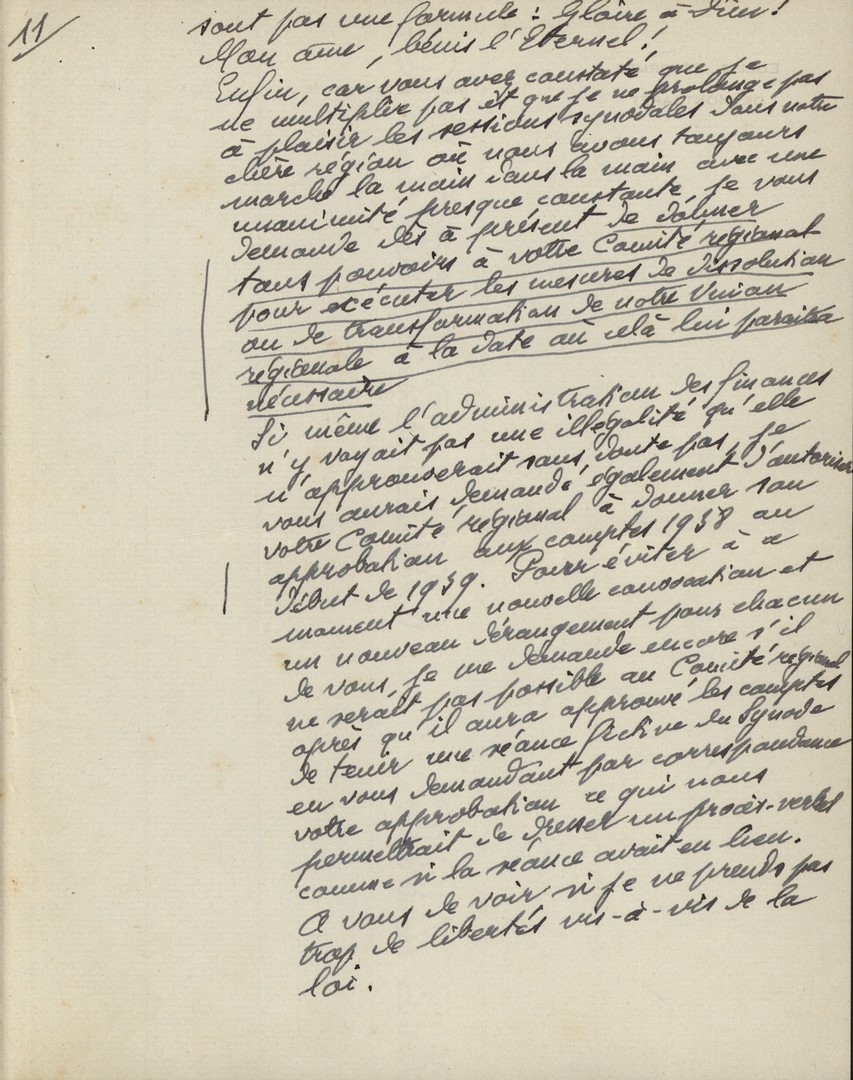 11/
sont pas une formule : Gloire à Dieu !
Mon âme, bénis l'Eternel !
Enfin, car vous avez constaté que je
ne multiplie pas et que je ne prolonge pas
à plaisir les sessions synodales dans notre
chère région où nous avons toujours
marché la main dans la main avec une
unanimité presque constante, je vous
demande dès à présent de donner
tous pouvoirs à votre Comité régional
pour exécuter les mesures de dissolution
ou de transformation de notre Union
régionale à la date où celà lui paraitra
nécessaire
Si même l'administration des finances
n'y voyait pas une illégalité qu'elle
n'approuverait sans doute pas, je
vous aurais demandé également d'autoriser
votre Comité régional à donner son
approbation aux comptes 1938 au
début de 1939. Pour éviter à ce
moment une nouvelle convocation et
un nouveau dérangement pour chacun
de vous, je me demande encore s'il
ne serait pas possible au Comité régional
après qu'il aura approuvé les comptes
de tenir une séance fictive du Synode
en vous demandant par correspondance
votre approbation ce qui nous
permettrait de dresser un procès-verbal
comme si la séance avait eu lieu.
A vous de voir si je ne prends pas
trop de libertés vis-à-vis de la
loi.